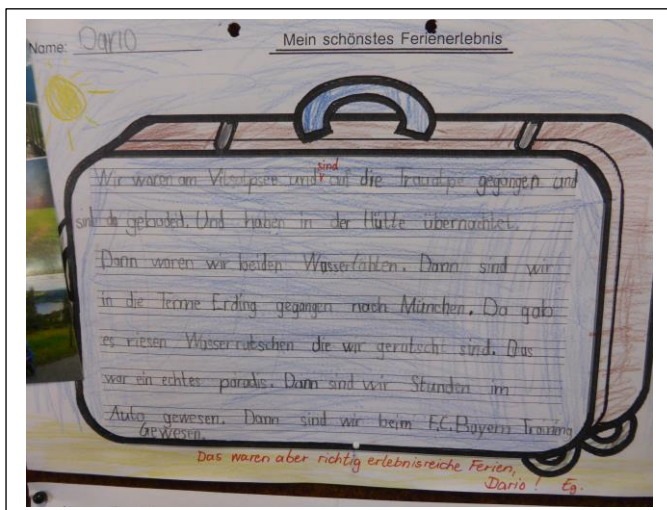 Name: Dario
Mein schönstes Ferienerlebnis
sind
Wir waren am Vilsalpsee und auf die Traualpe gegangen und
sind da gebaded. Und haben in der Hütte übernachtet.
Dann waren wir beiden Dann sind wir
in die Terme Erding gegangen nach München. Da gab
es riesen Wasserrutschen die wir gerutscht sind. Das
war ein echtes paradis. Dann sind wir Stunden im
Auto gewesen. Dann sind wir beim F.C.Bayern Training
Gewesen.
Das waren aber richtig erlebnisreiche Ferien,
Dario! Eg.